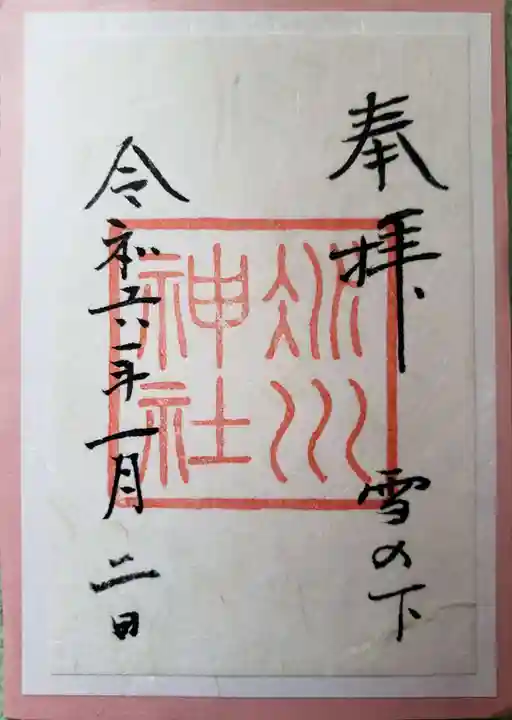 奉拝
雪の下
冰川
神社
令和六年一月二日